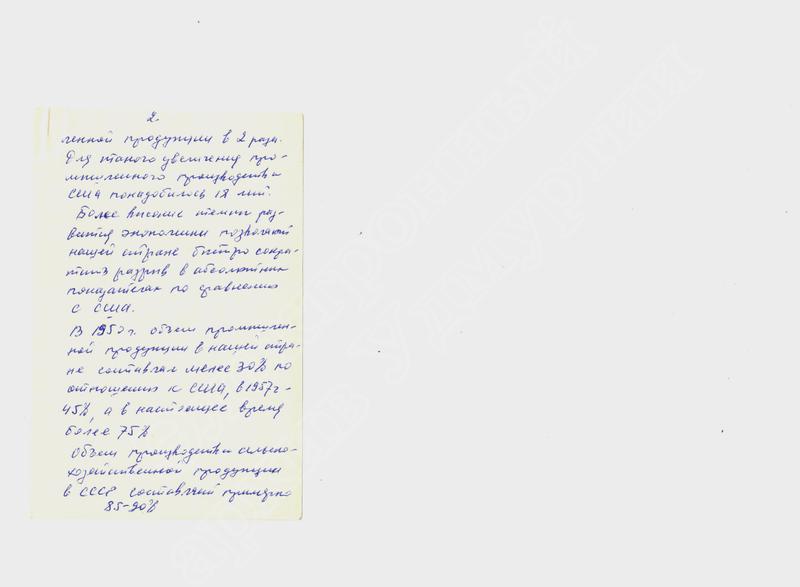 2.
ленной продукции в 2 раза.
Для такого увеличения про-
мышленного производства
США понадобилось 12 лет.
Более высокие темпы раз-
вития экономики позволяют
нашей стране быстро сокра-
тить разрыв в абсолютных
показателях по сравнению
с США.
В 1950 г. объем промышлен-
ной продукции в нашей стра-
не составлял менее 30% по
отношению к США, в 1957 г -
45%, а в настоящее время
более 75%
Объем производства сельско-
хозяйственной продукции
в СССР составляет примерно
85-90%